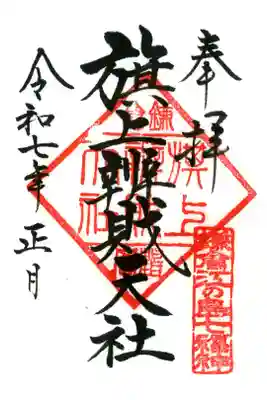 奉拝
旗上辨戝天社
令和七年 正月
鎌倉江の島七福神